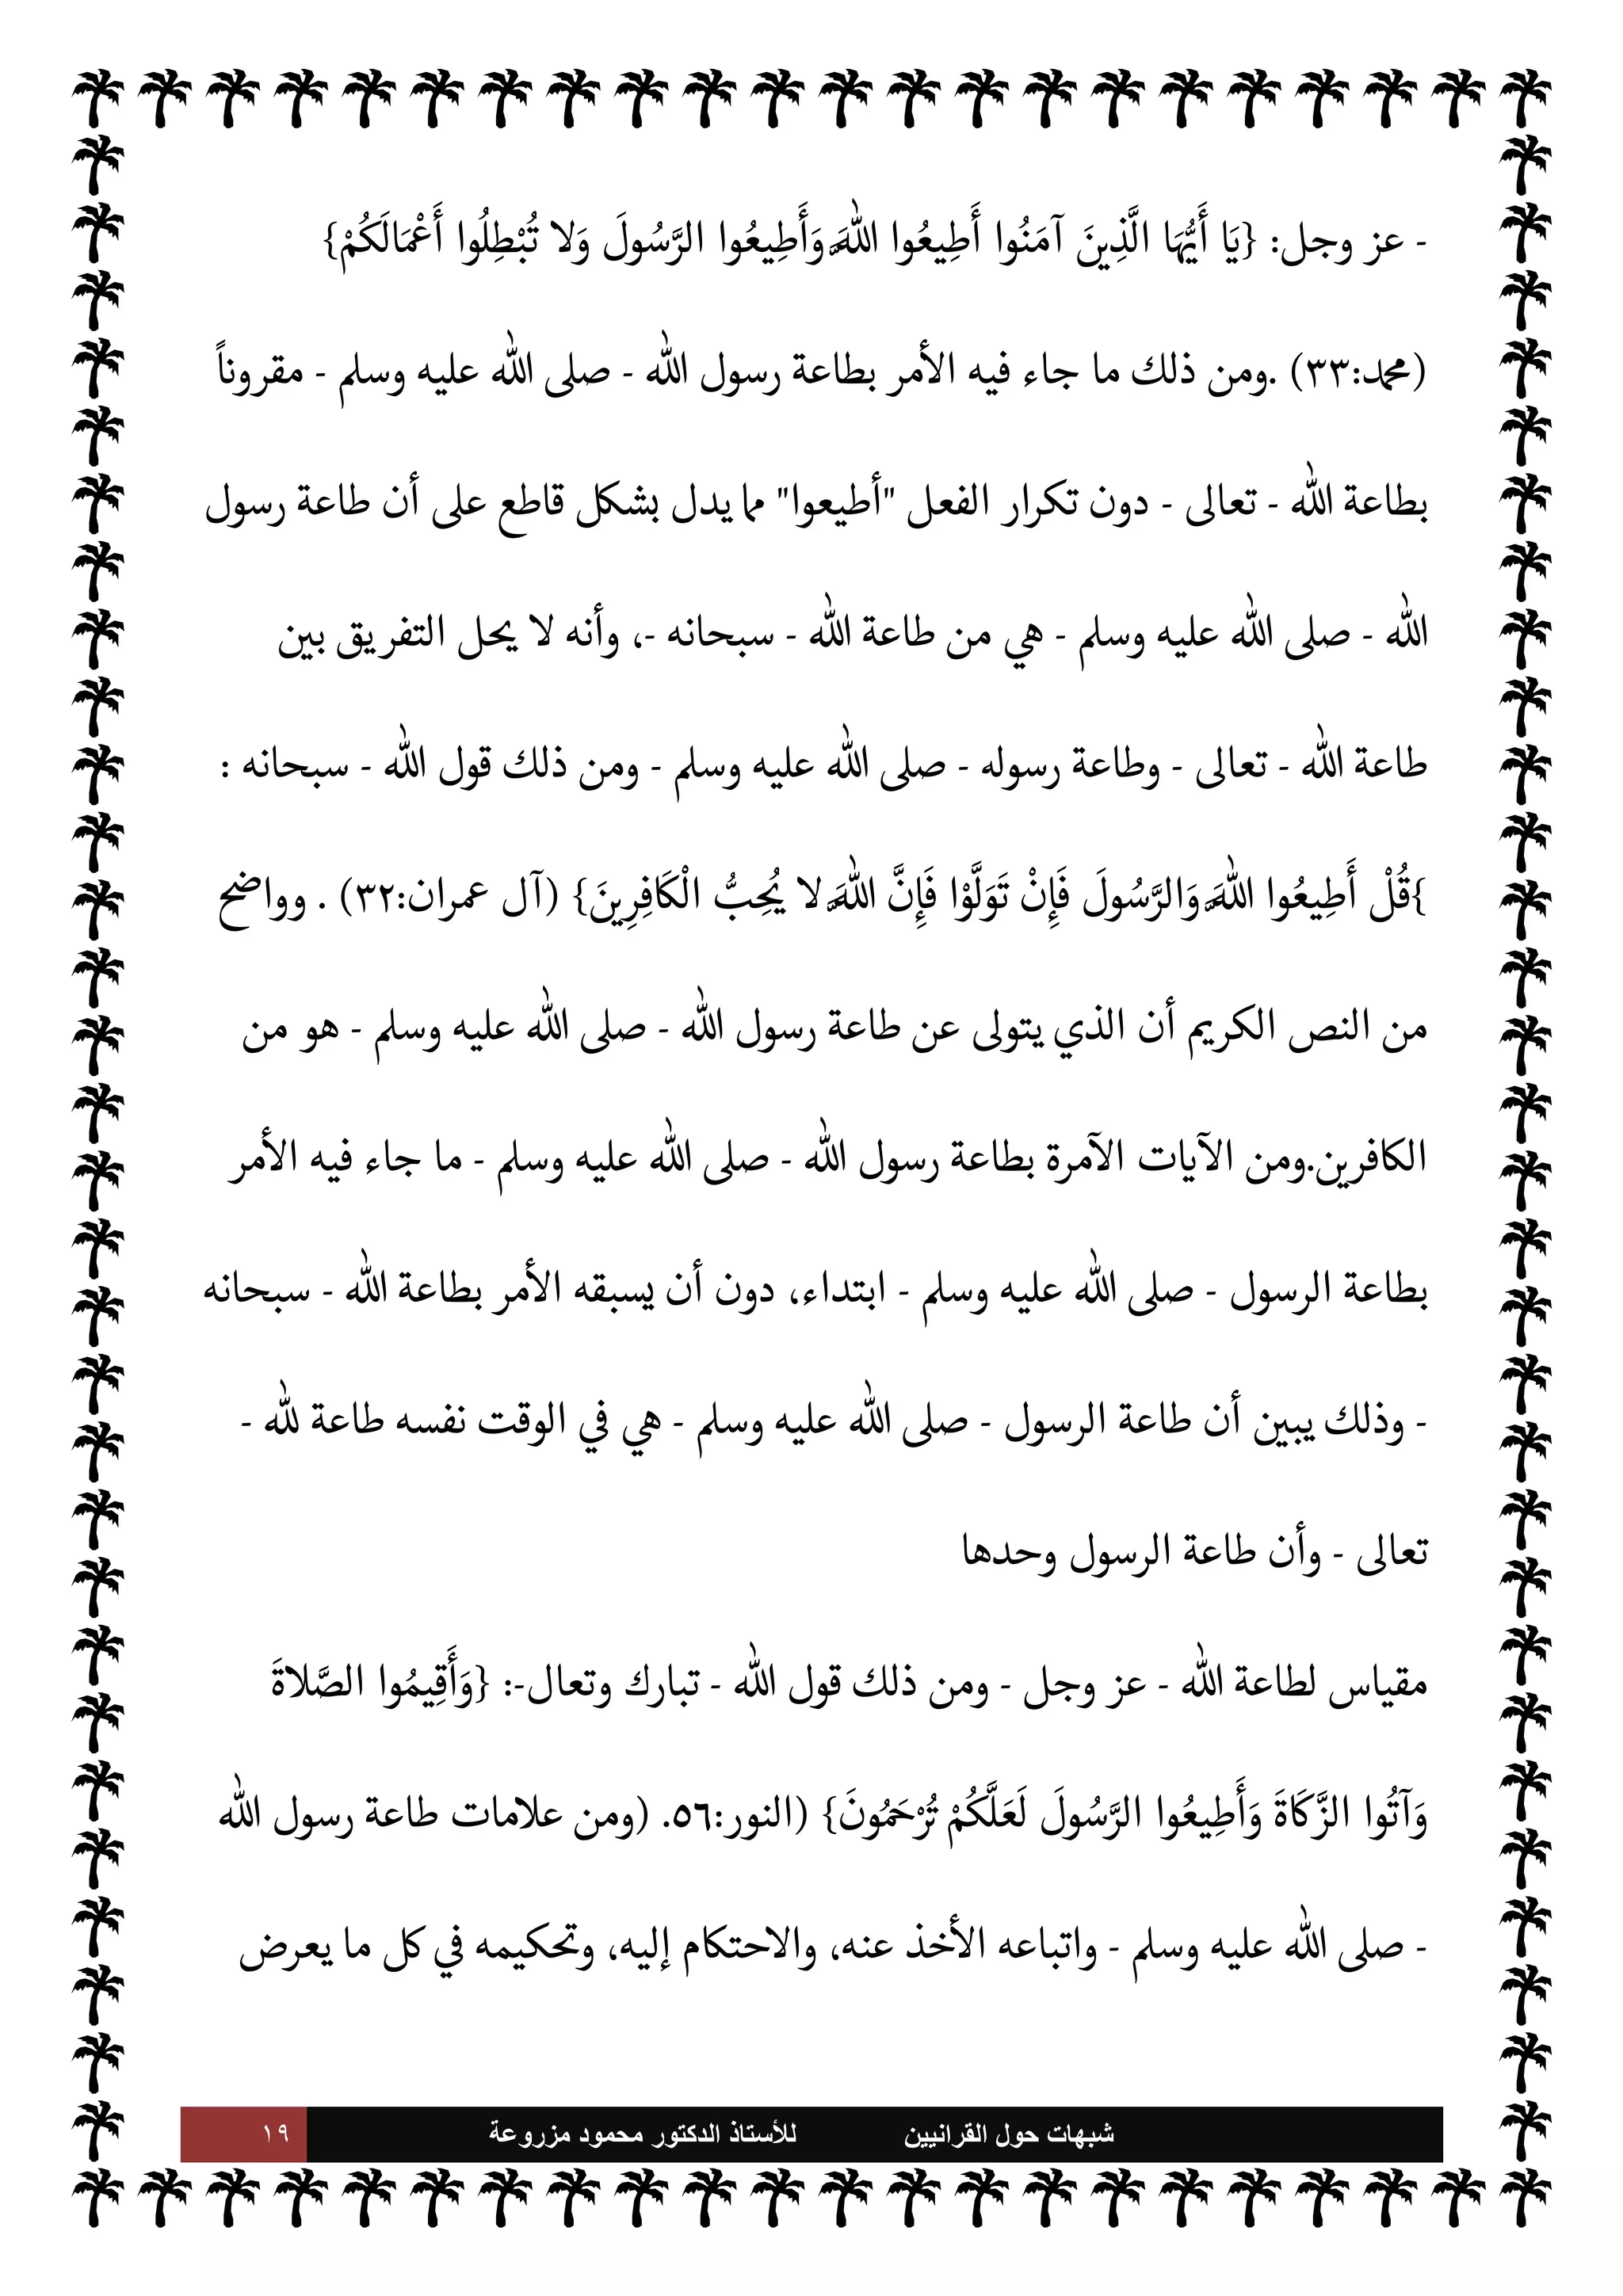 - عز وجل: {يَا أَيُّهَا الَّذِينَ آمَنُوا أَطِيعُوا اللَّهَ وَأَطِيعُوا الرَّسُولَ وَلا تُبْطِلُوا أَعْمَالَكُمْ}
(محمد:٣٣) .ومن ذلك ما جاء فيه الأمر بطاعة رسول الله - صلى الله عليه وسلم - مقروناً
بطاعة الله - تعالى - دون تكرار الفعل "أطيعوا" مما يدل بشكل قاطع على أن طاعة رسول
الله - صلى الله عليه وسلم - هي من طاعة الله - سبحانه -، وأنه لا يحل التفريق بين
طاعة الله - تعالى - وطاعة رسوله - صلى الله عليه وسلم - ومن ذلك قول الله - سبحانه :
{قُلْ أَطِيعُوا اللَّهَ وَالرَّسُولَ فَإِنْ تَوَلَّوْا فَإِنَّ اللَّهَ لا يُحِبُّ الْكَافِرِينَ} (آل عمران:٣٢) . وواضح
من النص الكريم أن الذي يتولى عن طاعة رسول الله - صلى الله عليه وسلم - هو من
الكافرين.ومن الآيات الآمرة بطاعة رسول الله - صلى الله عليه وسلم - ما جاء فيه الأمر
بطاعة الرسول - صلى الله عليه وسلم - ابتداء، دون أن يسبقه الأمر بطاعة الله - سبحانه
- وذلك يبين أن طاعة الرسول - صلى الله عليه وسلم - هي في الوقت نفسه طاعة لله -
تعالى - وأن طاعة الرسول وحدها
مقياس لطاعة الله - عز وجل - ومن ذلك قول الله - تبارك وتعال-: {وَأَقِيمُوا الصَّلاةَ
وَآتُوا الزَّكَاةَ وَأَطِيعُوا الرَّسُولَ لَعَلَّكُمْ تُرْحَمُونَ} (النور:٥٦. (ومن علامات طاعة رسول الله
- صلى الله عليه وسلم - واتباعه الأخذ عنه، والاحتكام إليه، وتحكيمه في كل ما يعرض
شبهات حول القرانيين للأستاذ الدكتور محمود مزروعة ١٩